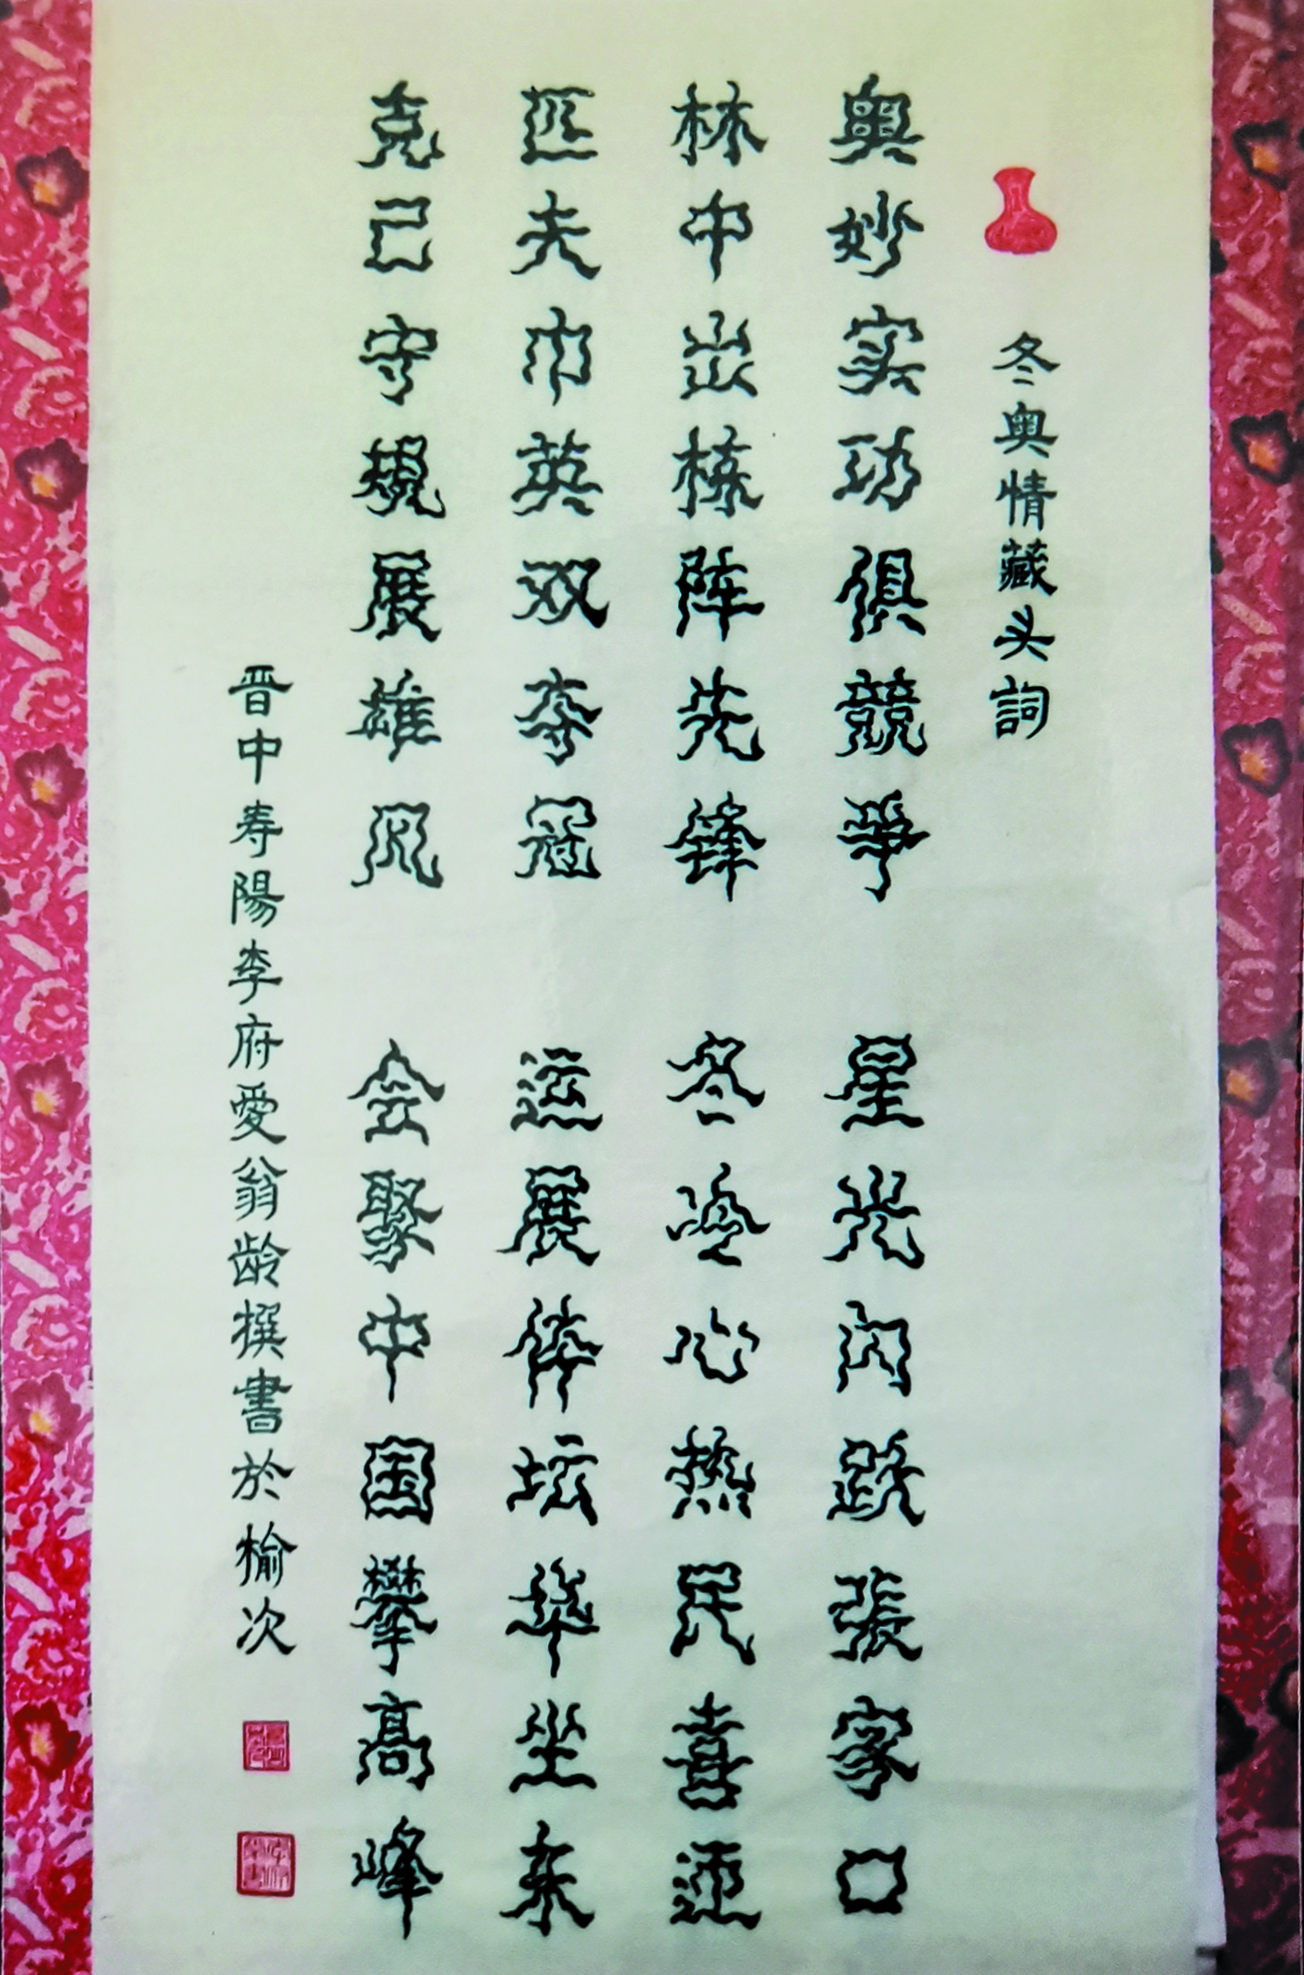 冬奥情藏头詞
奥妙实功俱競爭 星光闪跃張家口
林中出栋阵先锋 冬冷心热民喜迎
匹夫巾英双夺冠 运展体坛华坐东
克己守规展雄风 会聚中国攀高峰
晋中寿陽李府愛翁龄撰書於榆次